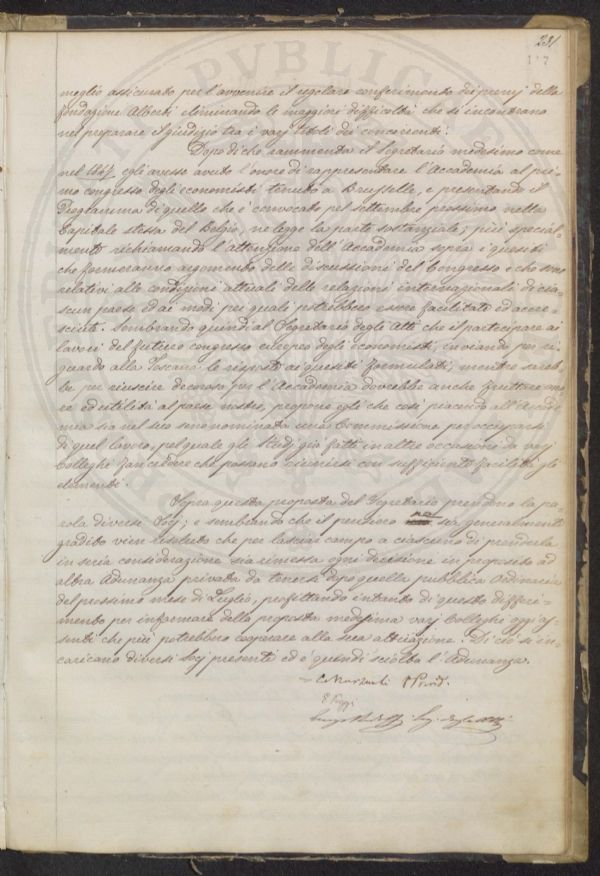 231
117
meglio assicurato per l'avvenire il regolare conferimento dei premj della
fondazione Alberti eliminando le maggiori difficoltà che si incontrano
nel preparare il giudizio tra i varj titoli dei concorrenti.
Dopo di che rammenta il Segretario medesimo come
nel 1847 egli avesse avuto l'onore di rappresentare l'Accademia al pri-
mo congresso degli economisti tenuto a Brusselle, e presentando il
Programma di quello che è convocato pel settembre prossimo nella
Capitale stessa del Belgio, ne legge la parte sostanziale; più special-
mente richiamando l'attenzione dell'Accademia sopra i quesiti
che formeranno argomento delle discussioni del Congresso e che sono
relativi alle condizioni attuali delle relazioni internazionali di cia-
scun paese ed ai modi pei quali potrebbero essere facilitate ed accre-
sciute. Sembrando quindi al Segretario degli Atti che il partecipare ai
lavori del futuro congresso europeo degli economisti, inviando per ri-
guardo alla Toscana le risposte ai quesiti formulati, mentre sareb-
be per riuscire decorosa per l'Accademia dovrebbe anche fruttare ono-
re ed utilità al paese nostro, propone egli che così piacendo all'Accade-
mia sia nel suo seno nominata una Commissione per occuparsi
di quel lavoro, pel quale gli studj già fatti in altre occasioni da varj
Colleghi fan credere che possano riunirsi con sufficiente facilità gli
elementi.
Sopra questa proposta del Segretario prendono la pa-
rola diversi Socj; e sembrando che il pensiero ne sia generalmente
gradito vien risoluto che per lasciar campo a ciascuno di prenderla
in seria considerazione sia rimessa ogni decisione in proposito ad
altra Adunanza privata da tenersi dopo quella pubblica ordinaria
del prossimo mese di Luglio, profittando intanto di questo differi-
mento per informare della proposta medesima varj Colleghi oggi as-
senti che più potrebbero cooperare alla sua attuazione. Di ciò si in-
caricano diversi Socj presenti ed è quindi sciolta l'Adunanza.